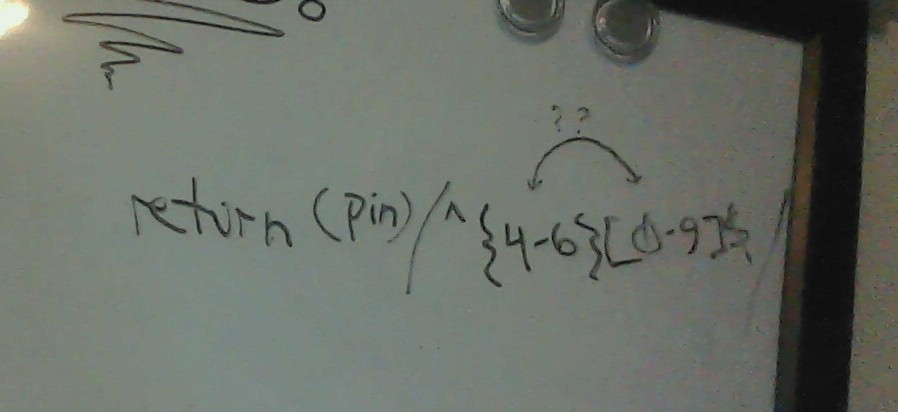 ??
return (pin) /^{4-6}[0-9]$/